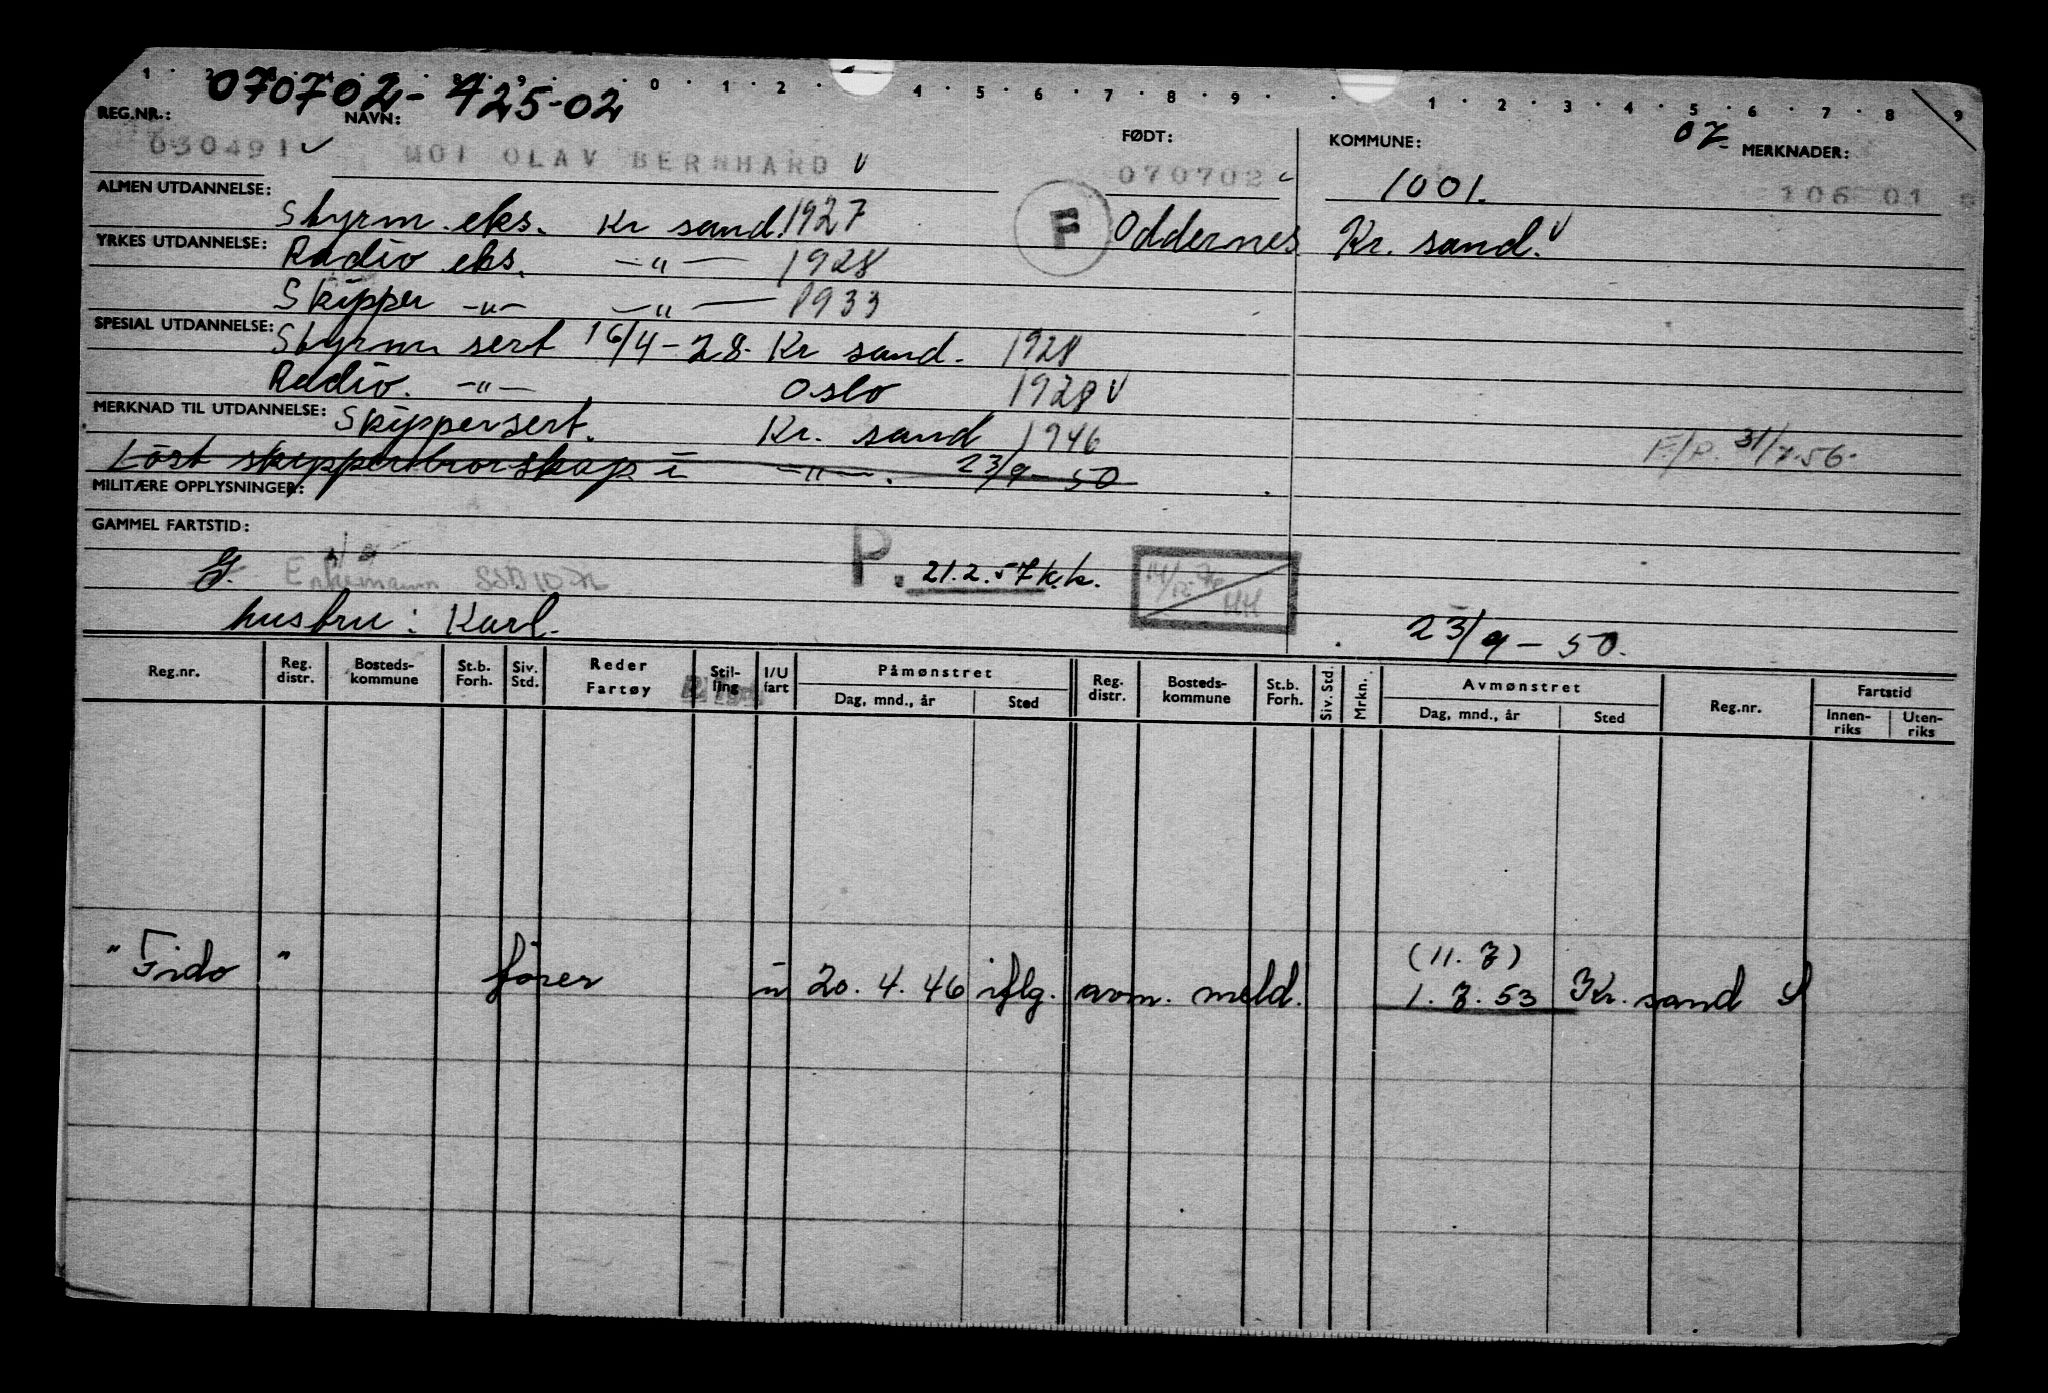 1 2 4 5 6 7 8 9 1 2 3 4 5 6 7 8 9
070702-425-02
REG.NR.: NAVN: FØDT: KOMMUNE: 07 MERKNADER:
030491 MOI OLAV BERNHARD 070702 1001. 106 01
ALMEN UTDANNELSE: Styrm. eks. Kr sand. 1927 F Oddernes Kr. sand.
YRKES UTDANNELSE: Radio eks. -"- 1928
Skipper -"- -"- 1933
SPESIAL UTDANNELSE: Styrm sert 16/4-28. Kr sand. 1928
Radio. -"- Oslo 1928
MERKNAD TIL UTDANNELSE: Skippersert. Kr. sand 1946
Løst skipperborskap i -"-. 23/9-50 31/7-56.
MILITÆRE OPPLYSNINGER:
GAMMEL FARTSTID:
G. P. 21.2.57 k.k. HH
hustru: Karl. 23/9-50.
Reg.nr. Reg. distr. Bosteds-kommune St.b. Forh. Siv. Std. Reder Fartøy Stil-ling I/U fart Påmønstret Dag, mnd., år Sted Reg. distr. Bosteds-kommune St.b. Forh. Siv. Std. Mrkn. Avmønstret Dag, mnd., år Sted Reg.nr. Fartstid Innen-riks Uten-riks
(11.7)
"Fido" fører u 20.4.46 iflg. avm. meld. 1.7.53 Kr. sand S